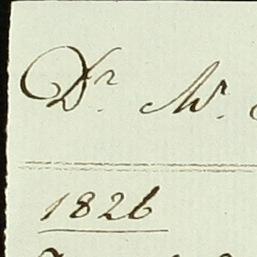 Dr. Mr.
1826